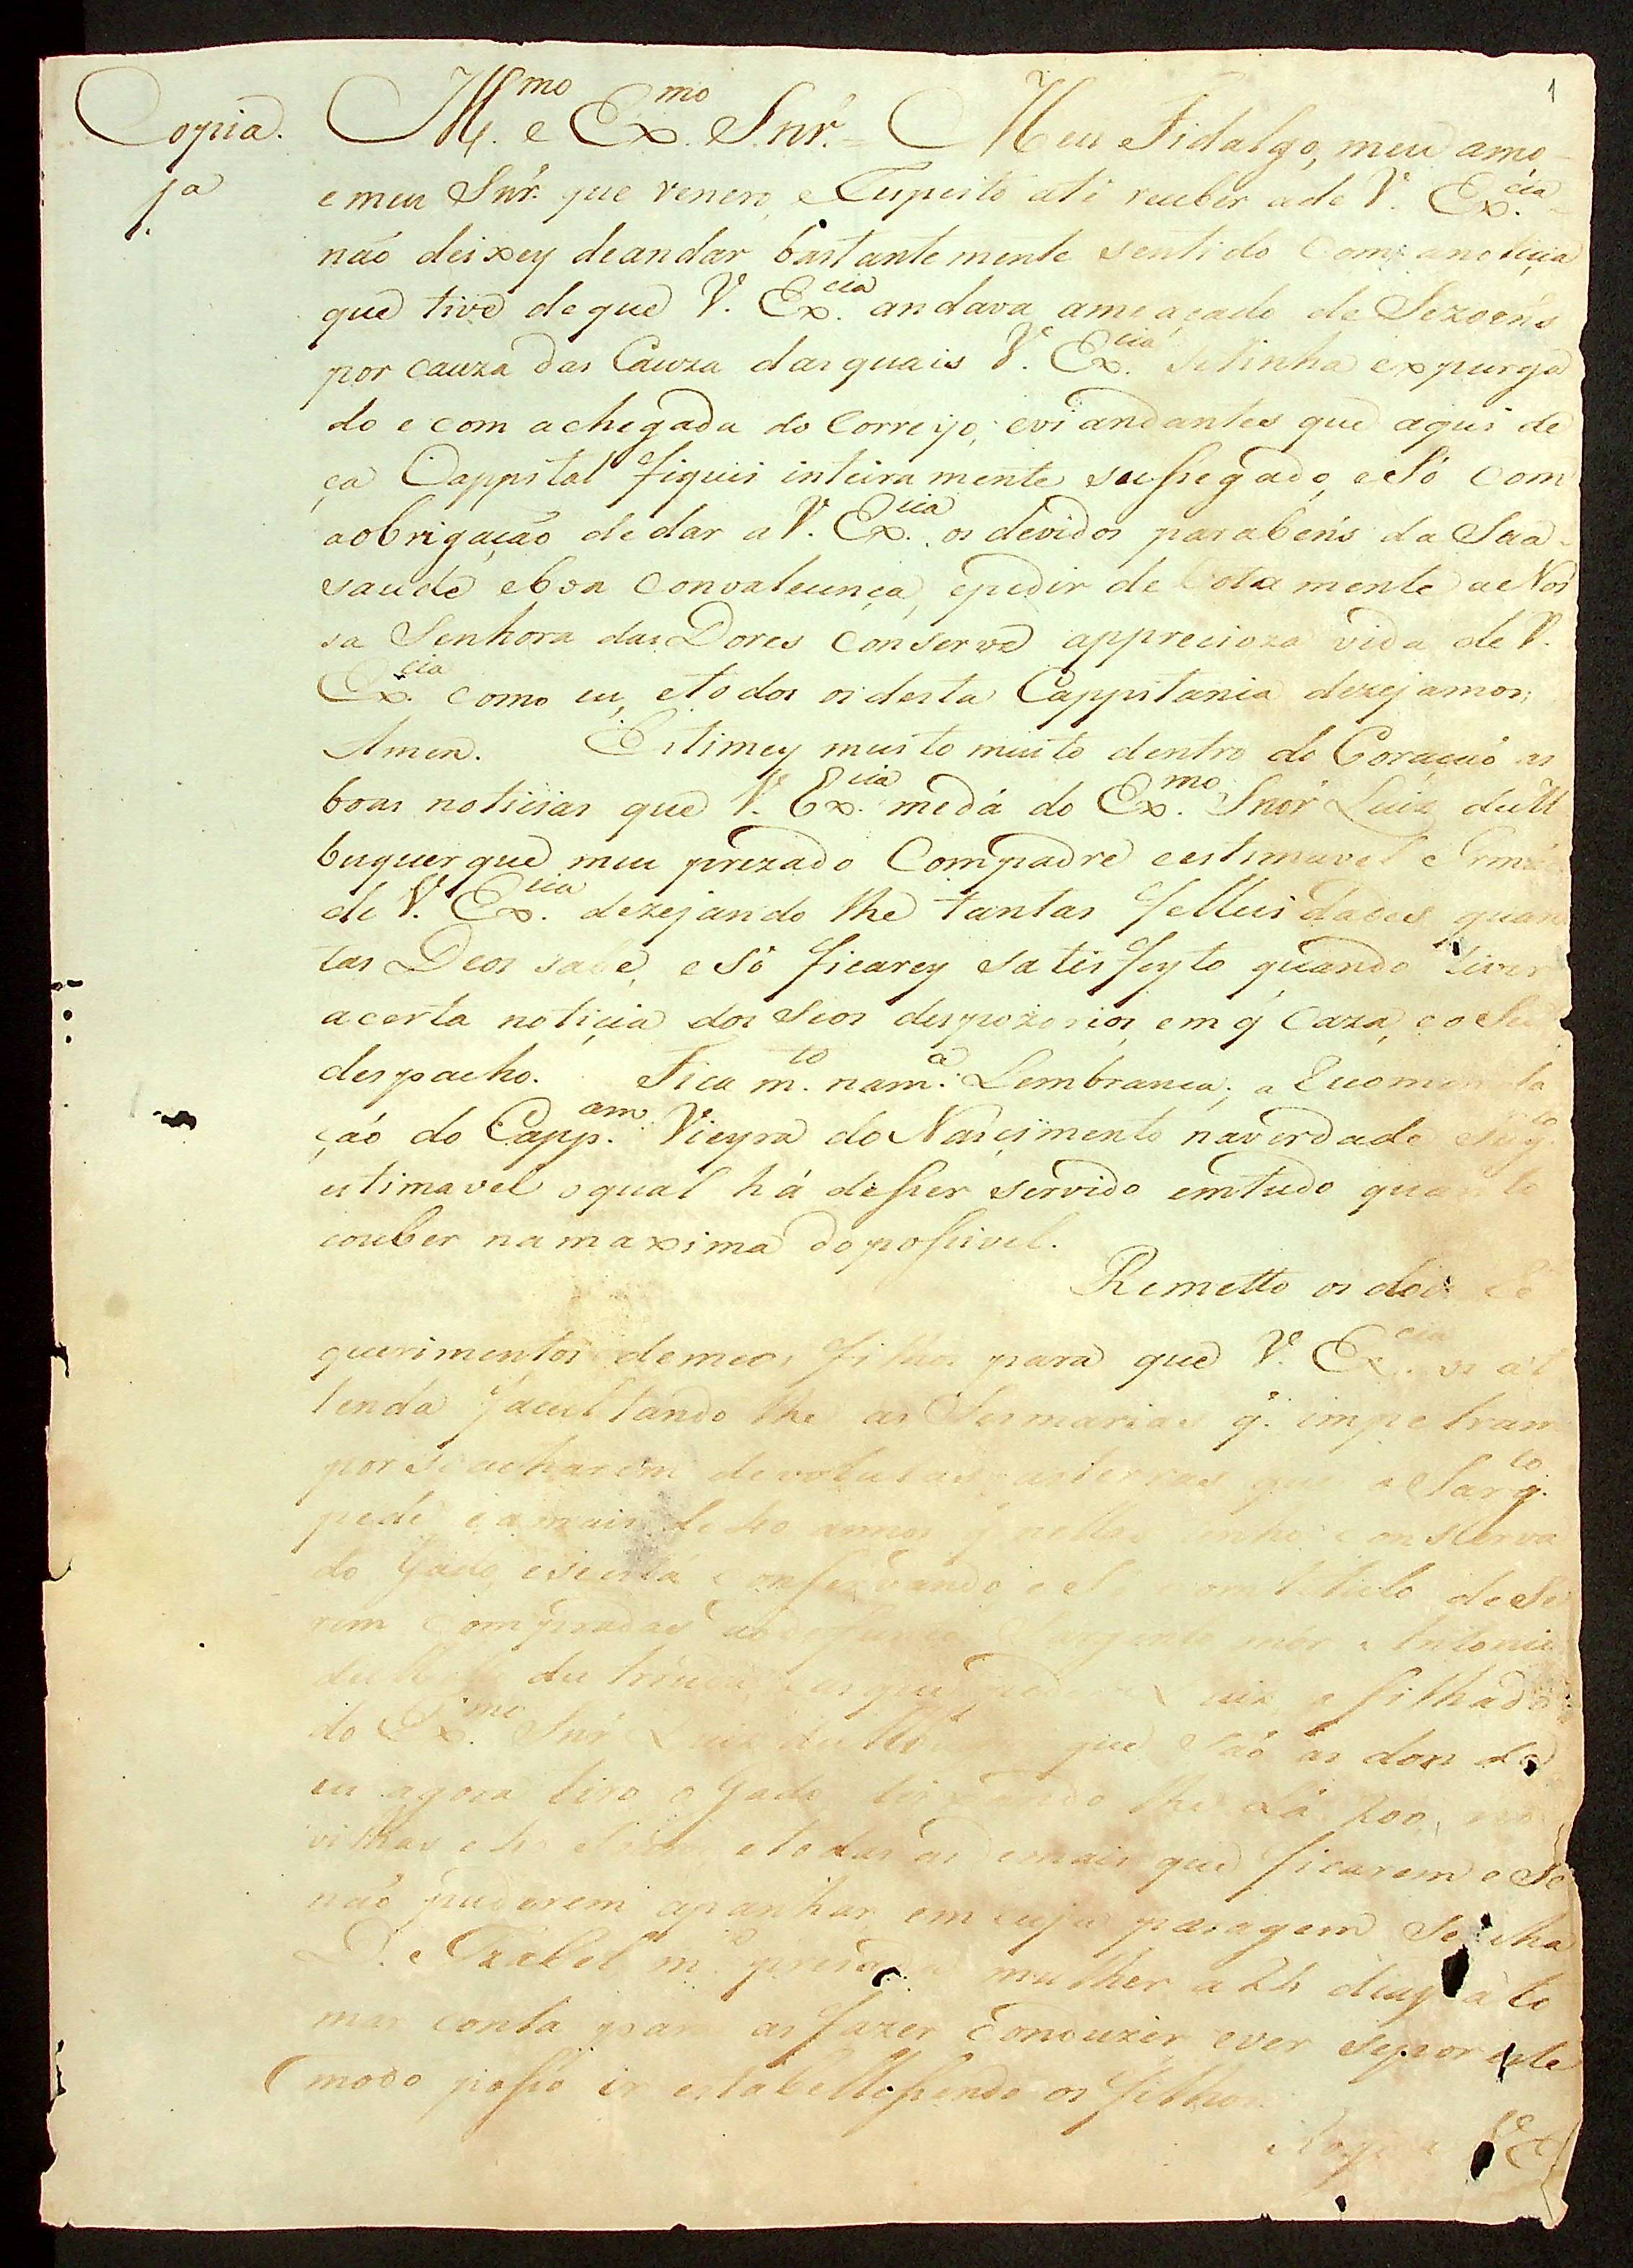 1
Copia. Ill.mo e Ex.mo Snr. = Meu Fidalgo, meu amo
1.a e meu Snr. que venero, e Respeito até receber a de V. Ex.cia
não deixey de andar bastantemente sentido com a noticia
que tive de que V. Ex.cia andava ameaçado de Sezoens
por cauza das Cauza das quais V. Ex.cia se tinha expurga
do e com a chegada do Correyo, e viandantes que aqui de
ça Cappital fiquei inteiramente sussegado, e só com
a obrigação de dar a V. Ex.cia os devidos parabens da Sua
saude e boa convalecença, e pedir devotamente a Nos
sa Senhora das Dores conserve apprecioza vida de V.
Ex.cia como eu, e todos os desta Cappitania dezejamos,
Amen. Estimey muito muito dentro do Coração as
boas noticias que V. Ex.cia me dá do Ex.mo Snor Luiz de Al
buquerque meu prezado Compadre e estimavel Irmão
de V. Ex.cia dezejando lhe tantas fellicidades quan
tas Deos sabe, e só ficarey satisfeyto quando tiver
a certa noticia dos Seos despozorios, em q̃ Caza, e o Seu
despacho. Fica m.to na m.a Lembranca, a Encomenda
ção do Capp.am Vieyra do Nascimento na verdade
estimavel o qual há de sser servido em tudo quanto
couber na maxima do possivel.
Remetto os dois Re
querimentos de meos filhos para que V. Ex.cia os at
tenda facultando lhe as Sesmarias q̃. impetram
por se acharem devolutas as terras que o Sarg.to
pede e a mais de annos q̃ nellas tenho conserva
do Gado, e se está conservando, e só com titulo de Se
rem compradas ao defunto Sargento mór Antonio
da Trindade, e as que pede o Luiz afilhado
do Ex.mo Snr Luiz de Albuquerque que são as donde
eu agora tiro o Gado lá 200, no
vilhas e todas as demais que ficarem e Se
não puderem apanhar, em cuja paragem Se acha
D. Izabel m.a prezada mulher a 24 dias a to
mar conta para as fazer Conduzir, e ver se por este
modo posso ir estabellessendo os filhos.
Rogo a V. E